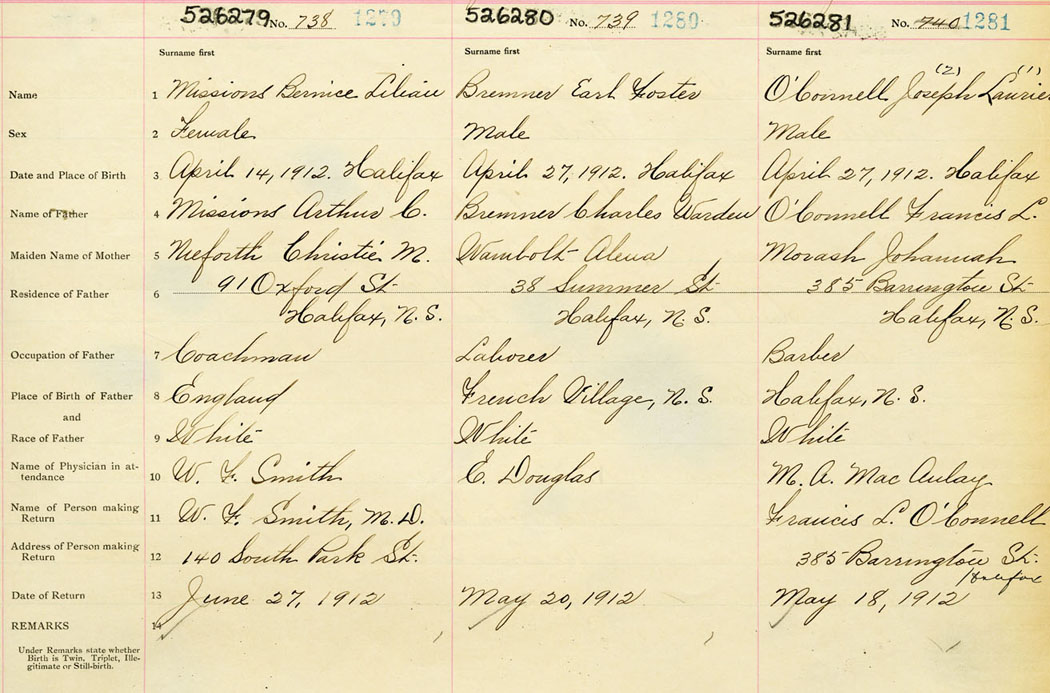 526279 No. 738 1279 526280 No. 739 1280 526281 No. 740 1281
Surname first Surname first Surname first
(2) (1)
Name 1 Missions Bernice Lilian Bremner Earl Foster O'Connell Joseph Laurier
Sex 2 Female Male Male
Date and Place of Birth 3 April 14, 1912. Halifax April 27, 1912. Halifax April 27, 1912. Halifax
Name of Father 4 Missions Arthur C. Bremner Charles Warden O'Connell Francis L.
Maiden Name of Mother 5 Nieforth Christie M. Wambolt Alena Morash Johannah
Residence of Father 6 91 Oxford St. 38 Summer St. 385 Barrington St.
Halifax, N.S. Halifax, N.S. Halifax, N.S.
Occupation of Father 7 Coachman Laborer Barber
Place of Birth of Father 8 England French Village, N.S. Halifax, N.S.
and
Race of Father 9 White White White
Name of Physician in at-
tendance 10 W. F. Smith E. Douglas M. A. MacAulay
Name of Person making
Return 11 W. F. Smith, M.D. Francis L. O'Connell
Address of Person making
Return 12 140 South Park St. 385 Barrington St.
Halifax
Date of Return 13 June 27, 1912 May 20, 1912 May 18, 1912
REMARKS 14
Under Remarks state whether
Birth is Twin, Triplet, Ille-
gitimate or Still-birth.